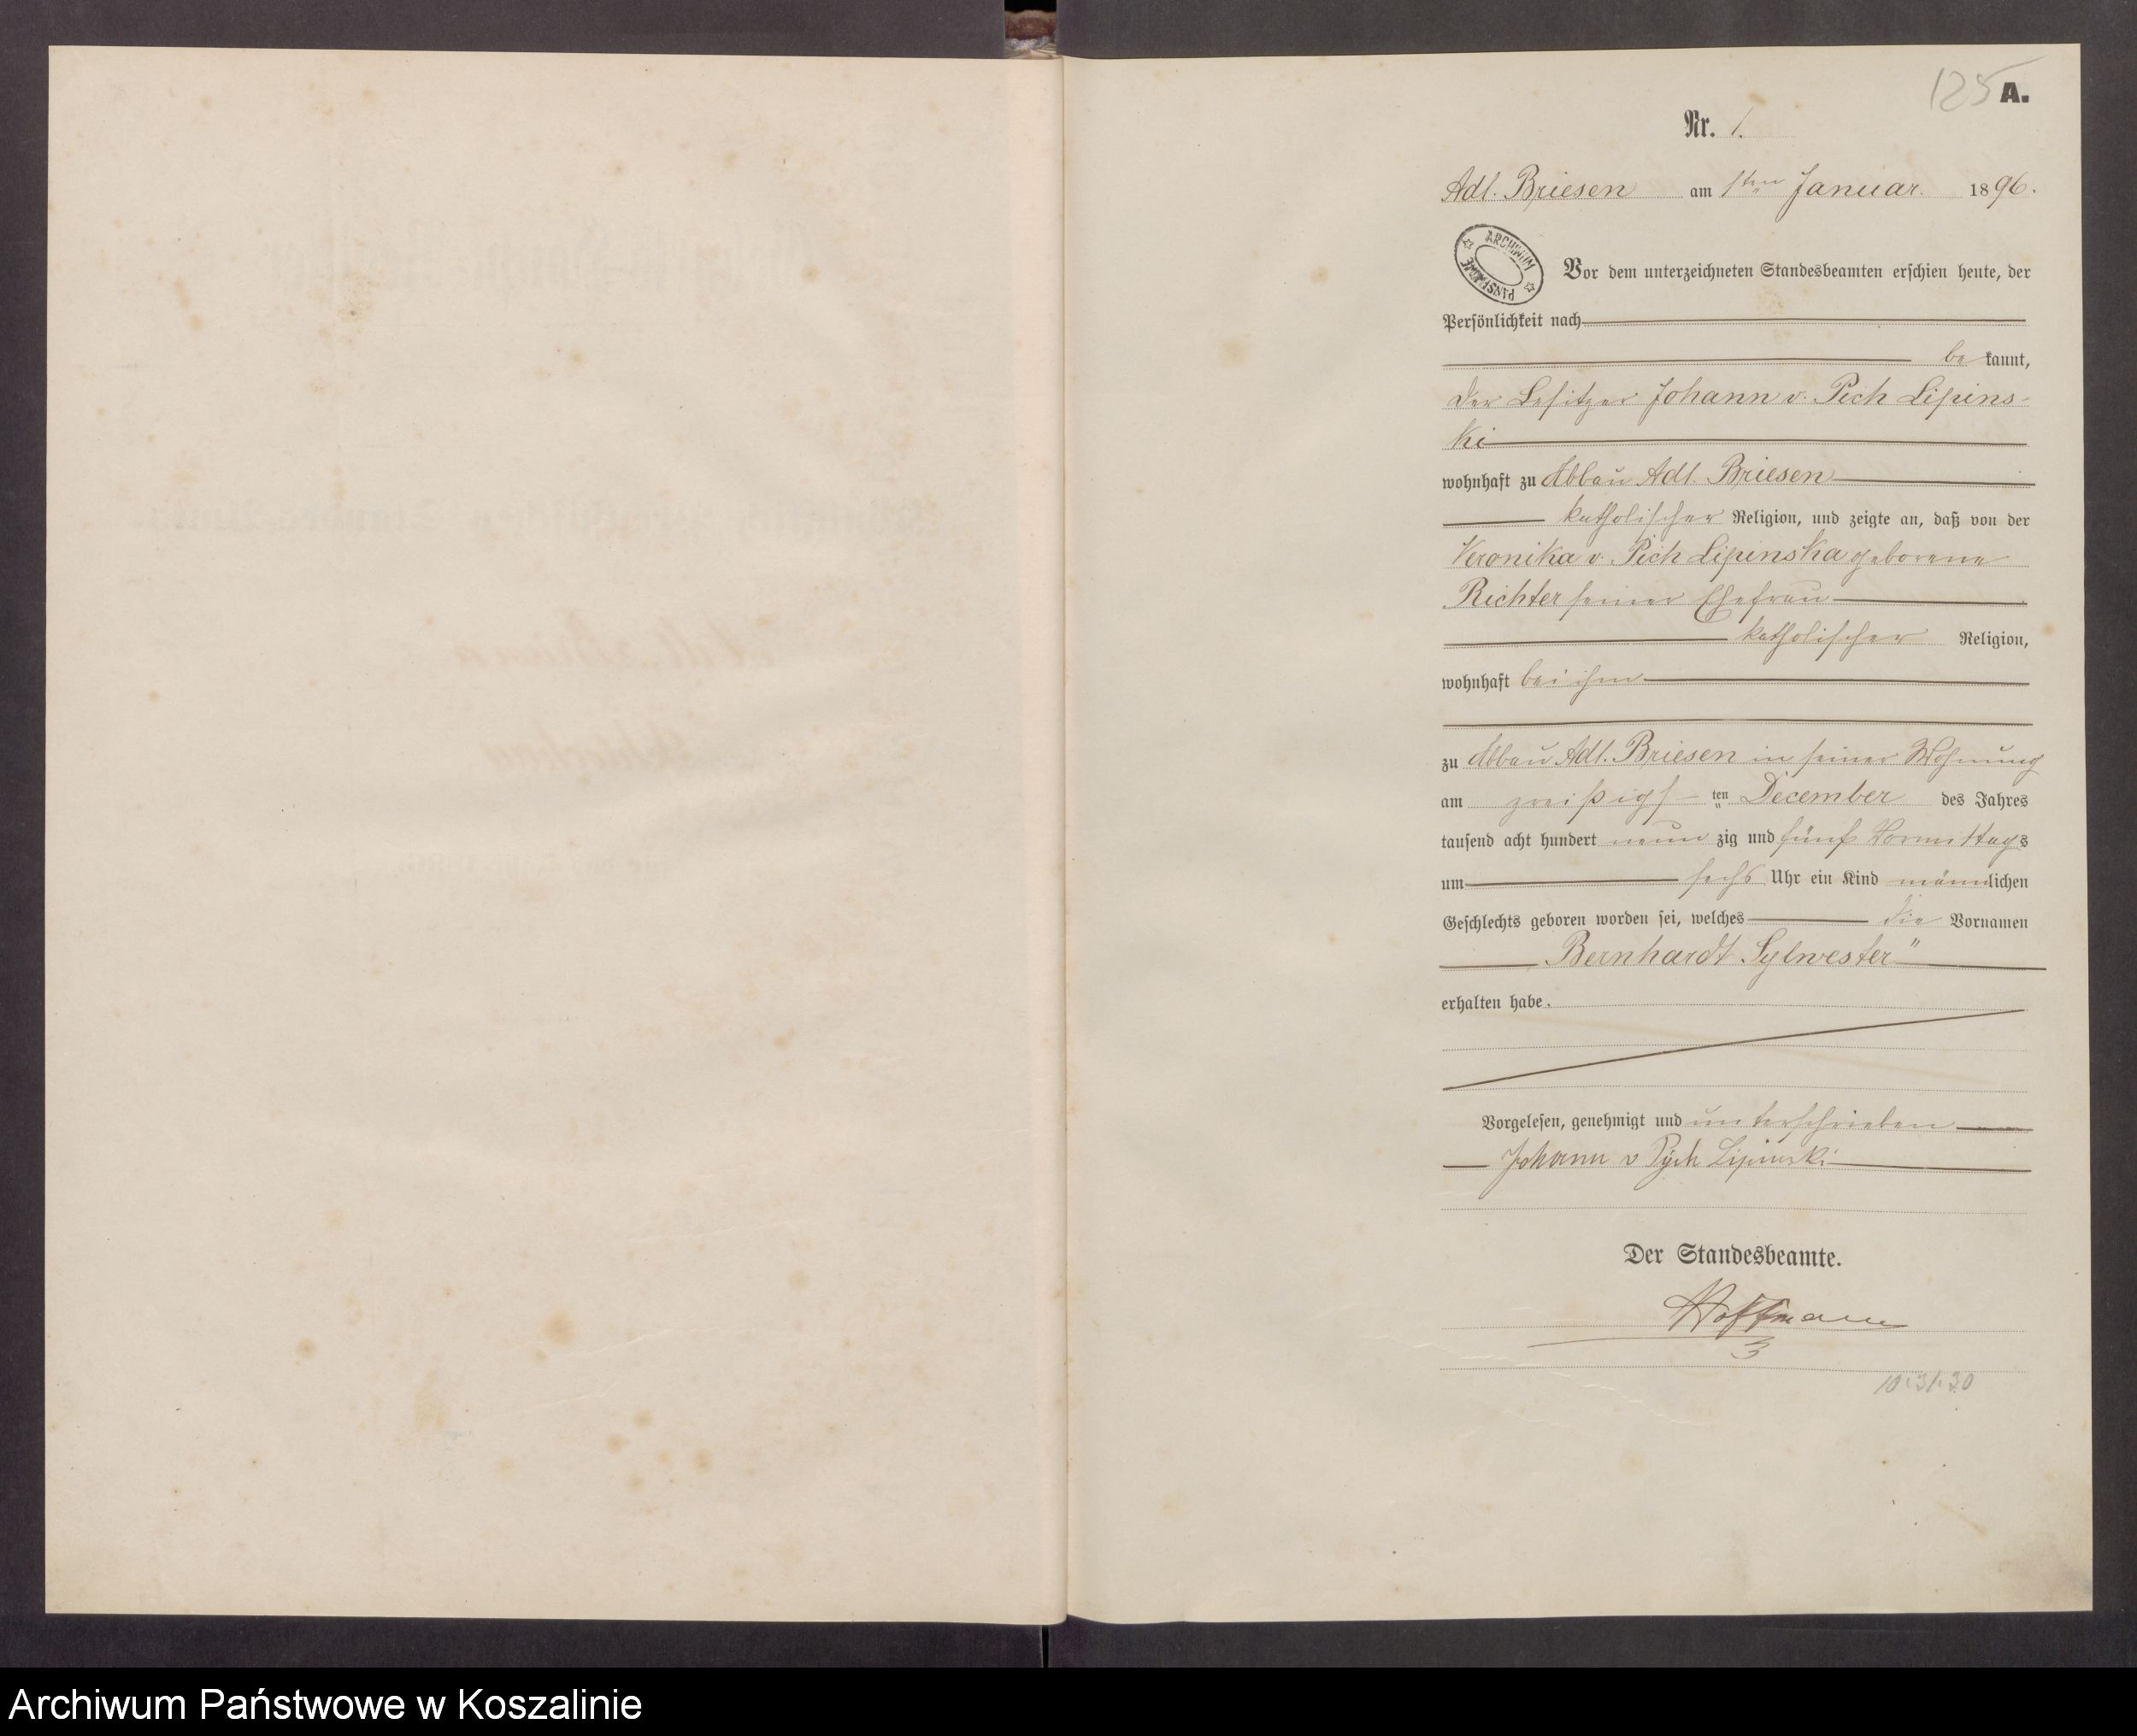 125 A.
Nr. 1.
Adl. Briesen am 1ten Januar. 1896.
ARCHIWUM PAŃSTWOWE
Vor dem unterzeichneten Standesbeamten erschien heute, der
Persönlichkeit nach
be kannt,
der Besitzer Johann v. Pich Lipins-
ki
wohnhaft zu Abbau Adl. Briesen
katholischer Religion, und zeigte an, daß von der
Veronika v. Pich Lipinska geborene
Richter seiner Ehefrau
katholischer Religion,
wohnhaft bei ihm
zu Abbau Adl. Briesen in seiner Wohnung
am ten December des Jahres
tausend acht hundert neun zig und fünf Vormittags
um sechs Uhr ein Kind männlichen
Geschlechts geboren worden sei, welches die Vornamen
„Bernhardt Sylwester"
erhalten habe.
Vorgelesen, genehmigt und unterschrieben
Johann v Pych Lipinski
Der Standesbeamte.
Hoffmann
10.31.30
Archiwum Państwowe w Koszalinie